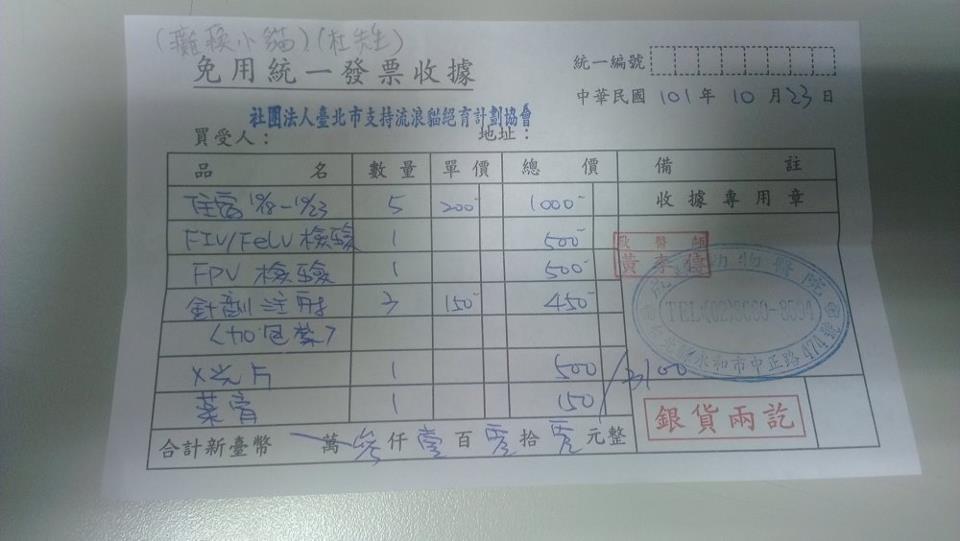 (癱瘓小貓)(杜先生)
免用統一發票收據
統一編號
中華民國 101 年 10 月 23 日
社團法人臺北市支持流浪貓絕育計劃協會
買受人： 地址：
品 名 數量 單價 總 價 備 註
住宿 10/8-10/23 5 200 1000 收據專用章
FIV/FeLV 檢驗 1 500
FPV 檢驗 1 500
針劑注射 3 150 450
(加包藥)
X光片 1 500 /3100
藥膏 1 150
獸醫師
動物醫院
永和市中正路474號
銀貨兩訖
合計新臺幣 萬 参仟壹百零拾零元整